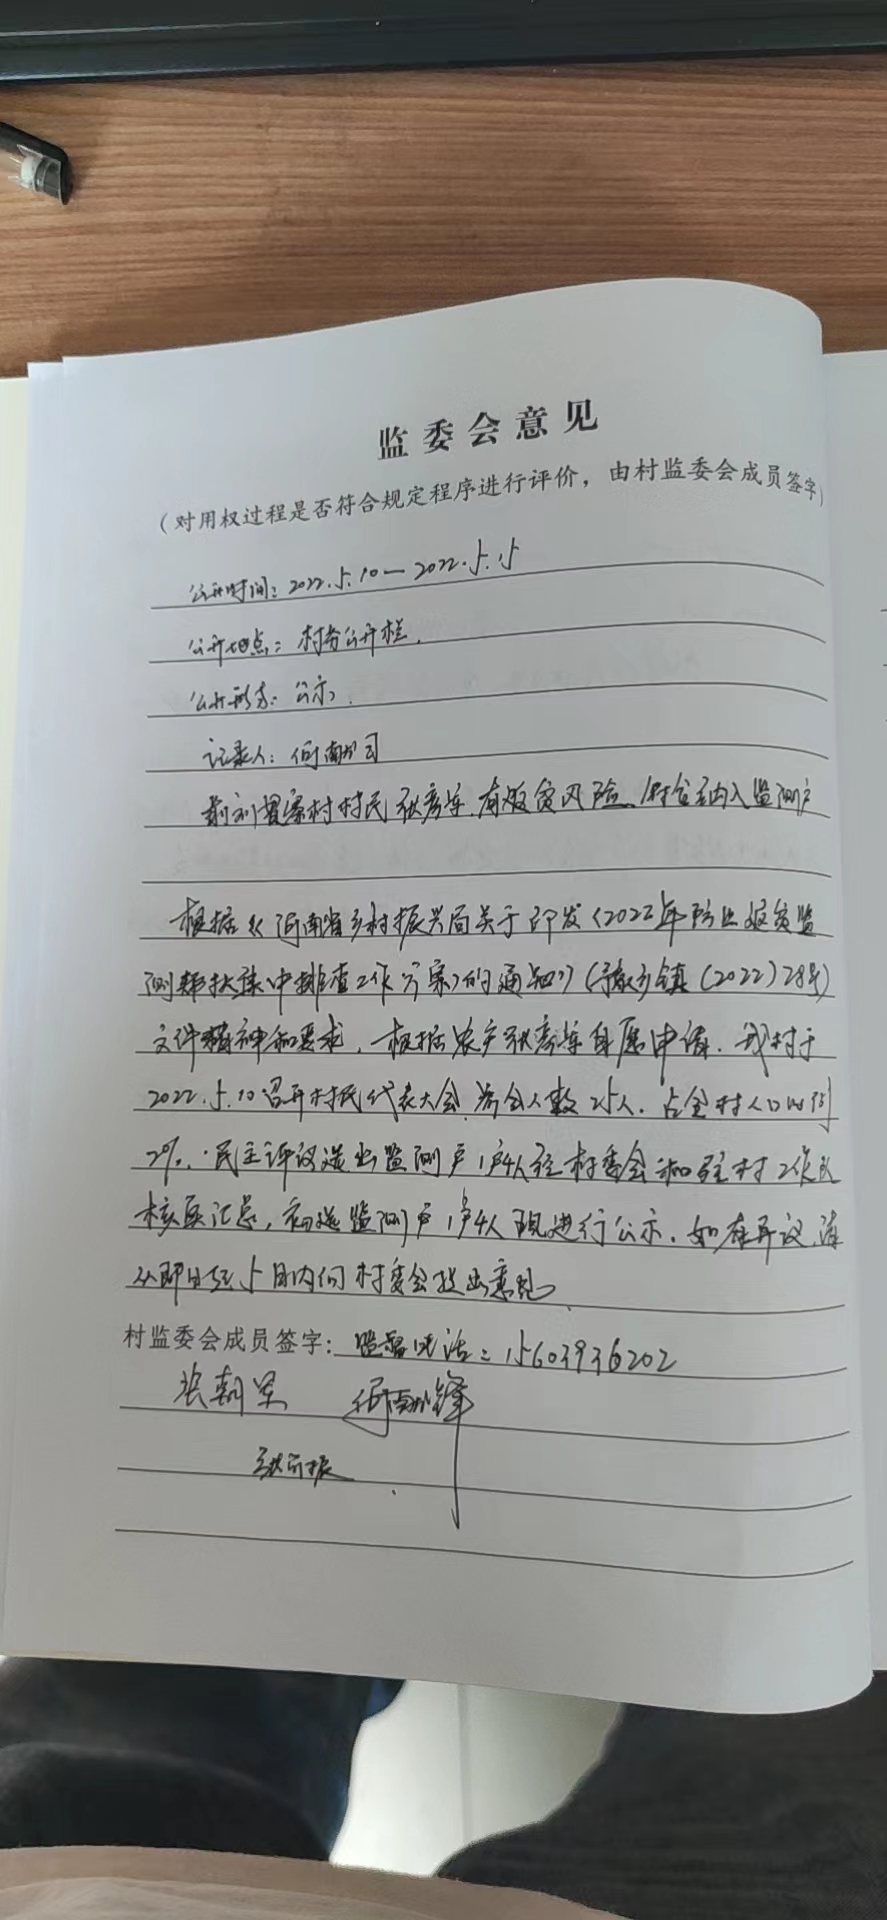 监委会意见
（对用权过程是否符合规定程序进行评价，由村监委会成员签字）
公开时间：2022.5.10—2022.5.15
公开地点：村务公开栏.
公开形式：公示.
记录人：何南
前刘营寨村村民张秀莲.有返贫风险、纳入监测户
根据《河南省乡村振兴局关于印发〈2022年防止返贫监
测帮扶集中排查工作方案〉的通知》（振乡镇（2022）28号）
文件精神和要求，根据农户张秀莲自愿申请.我村于
2022.5.10召开村民代表大会.参会人数25人.占全村人口的
2%.民主评议选出监测户1户4人经村委会和驻村工作队
核实汇总，初选监测户1户4人现进行公示.如有异议.请
从即日起5日内向村委会提出意见
村监委会成员签字：监督电话：15603936202
张朝